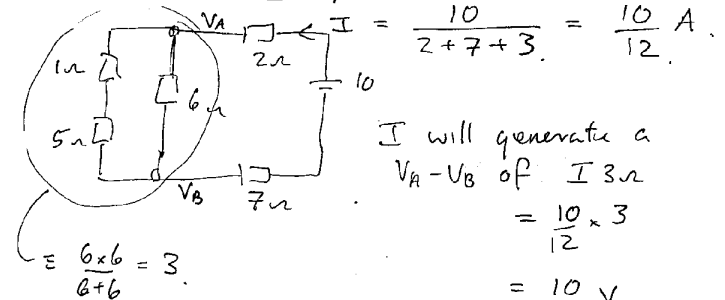 V_A
I = 10 / (2 + 7 + 3) = 10 / 12 A.
1Ω
2Ω
6Ω
10
5Ω
V_B
7Ω
I will generate a
V_A - V_B of I 3Ω
= 10/12 × 3
≡ (6×6)/(6+6) = 3.
= 10 V